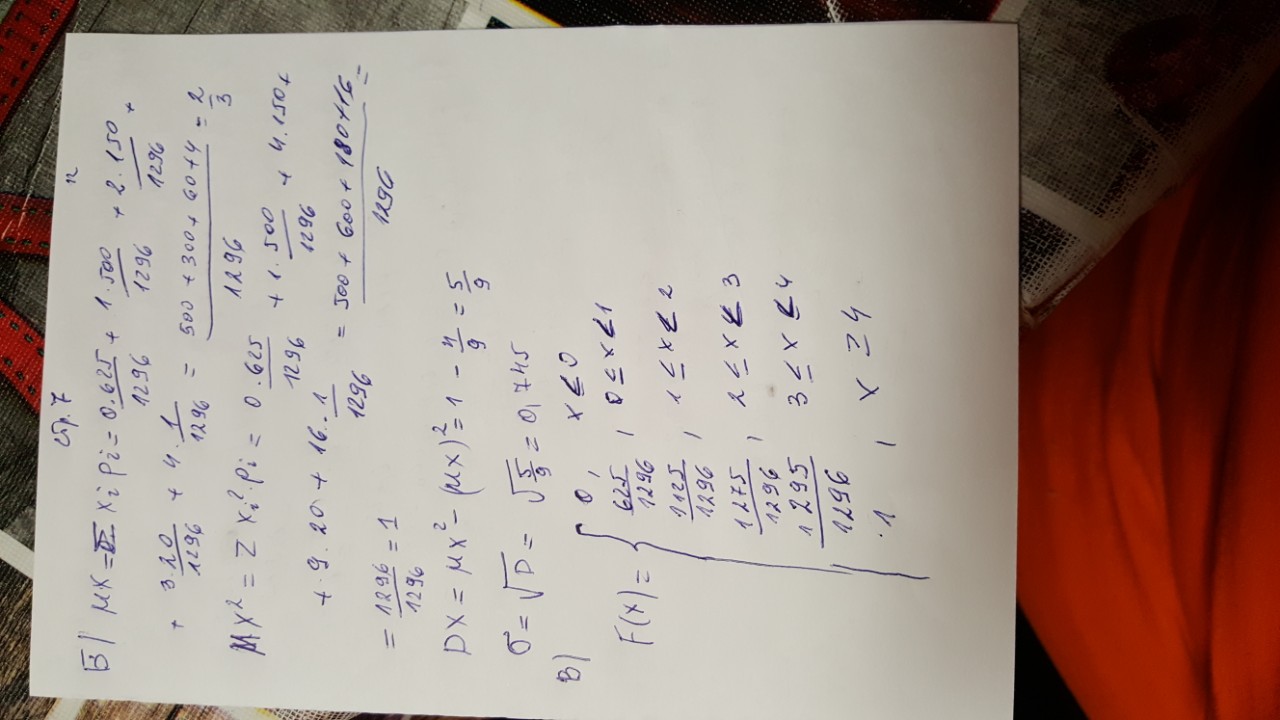 стр. 7 n
Б) μX = Σ xi pi = 0.625/1296 + 1.500/1296 + 2.150/1296 +
+ 3.20/1296 + 4.1/1296 = (500 + 300 + 60 + 4)/1296 = 2/3
μX² = Σ xi². pi = 0.625/1296 + 1.500/1296 + 4.150 +
+ 9.20 + 16.1/1296 = (500 + 600 + 180 + 16)/1296 =
= 1296/1296 = 1
DX = μX² - (μX)² = 1 - 4/9 = 5/9
σ = √D = √5/9 = 0,745
В)
F(x) = { 0, x < 0
625/1296, 0 ≤ x < 1
1125/1296, 1 ≤ x < 2
1275/1296, 2 ≤ x < 3
1295/1296 3 ≤ x < 4
1, x ≥ 4